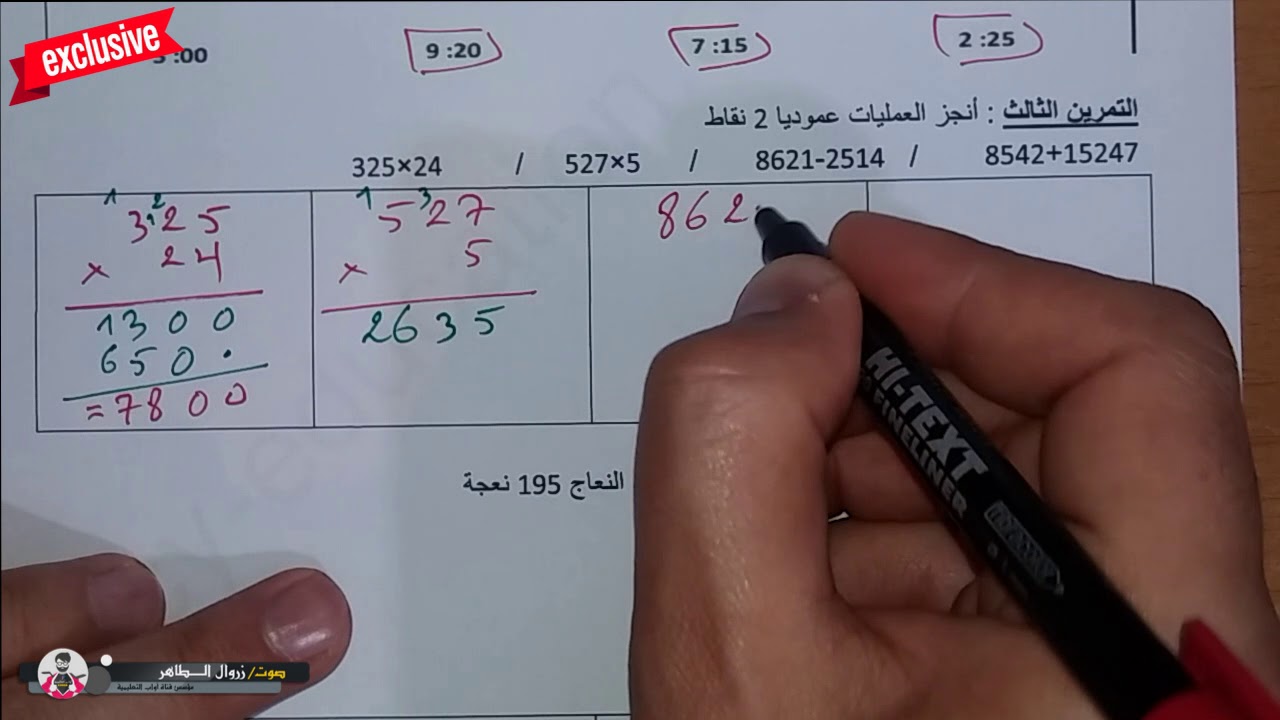 exclusive
:00
9 :20
7 :15
2 :25
التمرين الثالث : أنجز العمليات عموديا 2 نقاط
325×24 / 527×5 / 8621-2514 / 8542+15247
1 2
325
1
× 24
1300
650.
=7800
1 3
527
× 5
2635
862
النعاج 195 نعجة
HI-TEXT
FINELINER
صوت/ زروال الطاهر
مؤسس: قناة اواب التعليمية